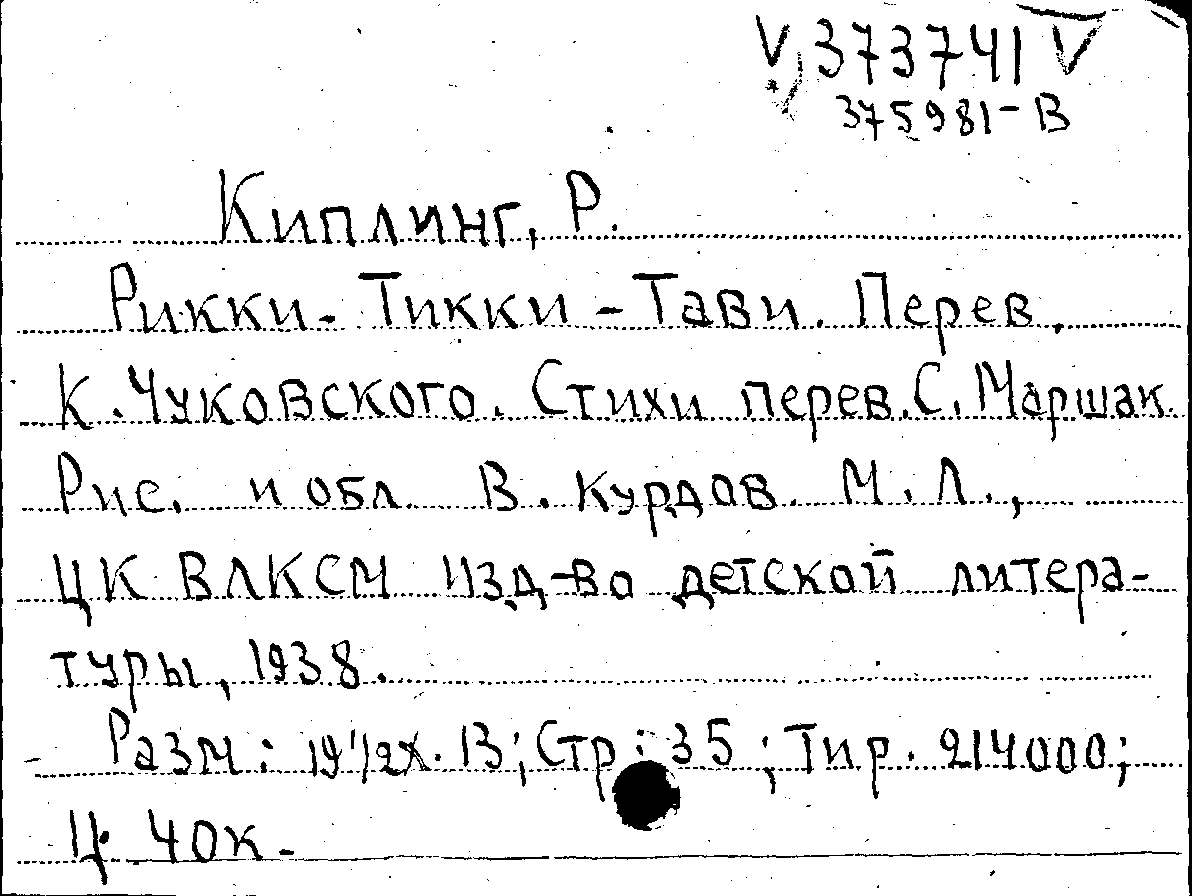 V 373741 V
375981-В
Киплинг, Р.
Рикки-Тикки-Тави. Перев.
К. Чуковского. Стихи перев. С. Маршак.
Рис. и обл. В. Курдов. М. Л.,
ЦК ВЛКСМ изд-во детской литера-
туры, 1938.
Разм: 19 1/2 х. 13; Стр: 35; Тир. 214000;
Ц. 40к.